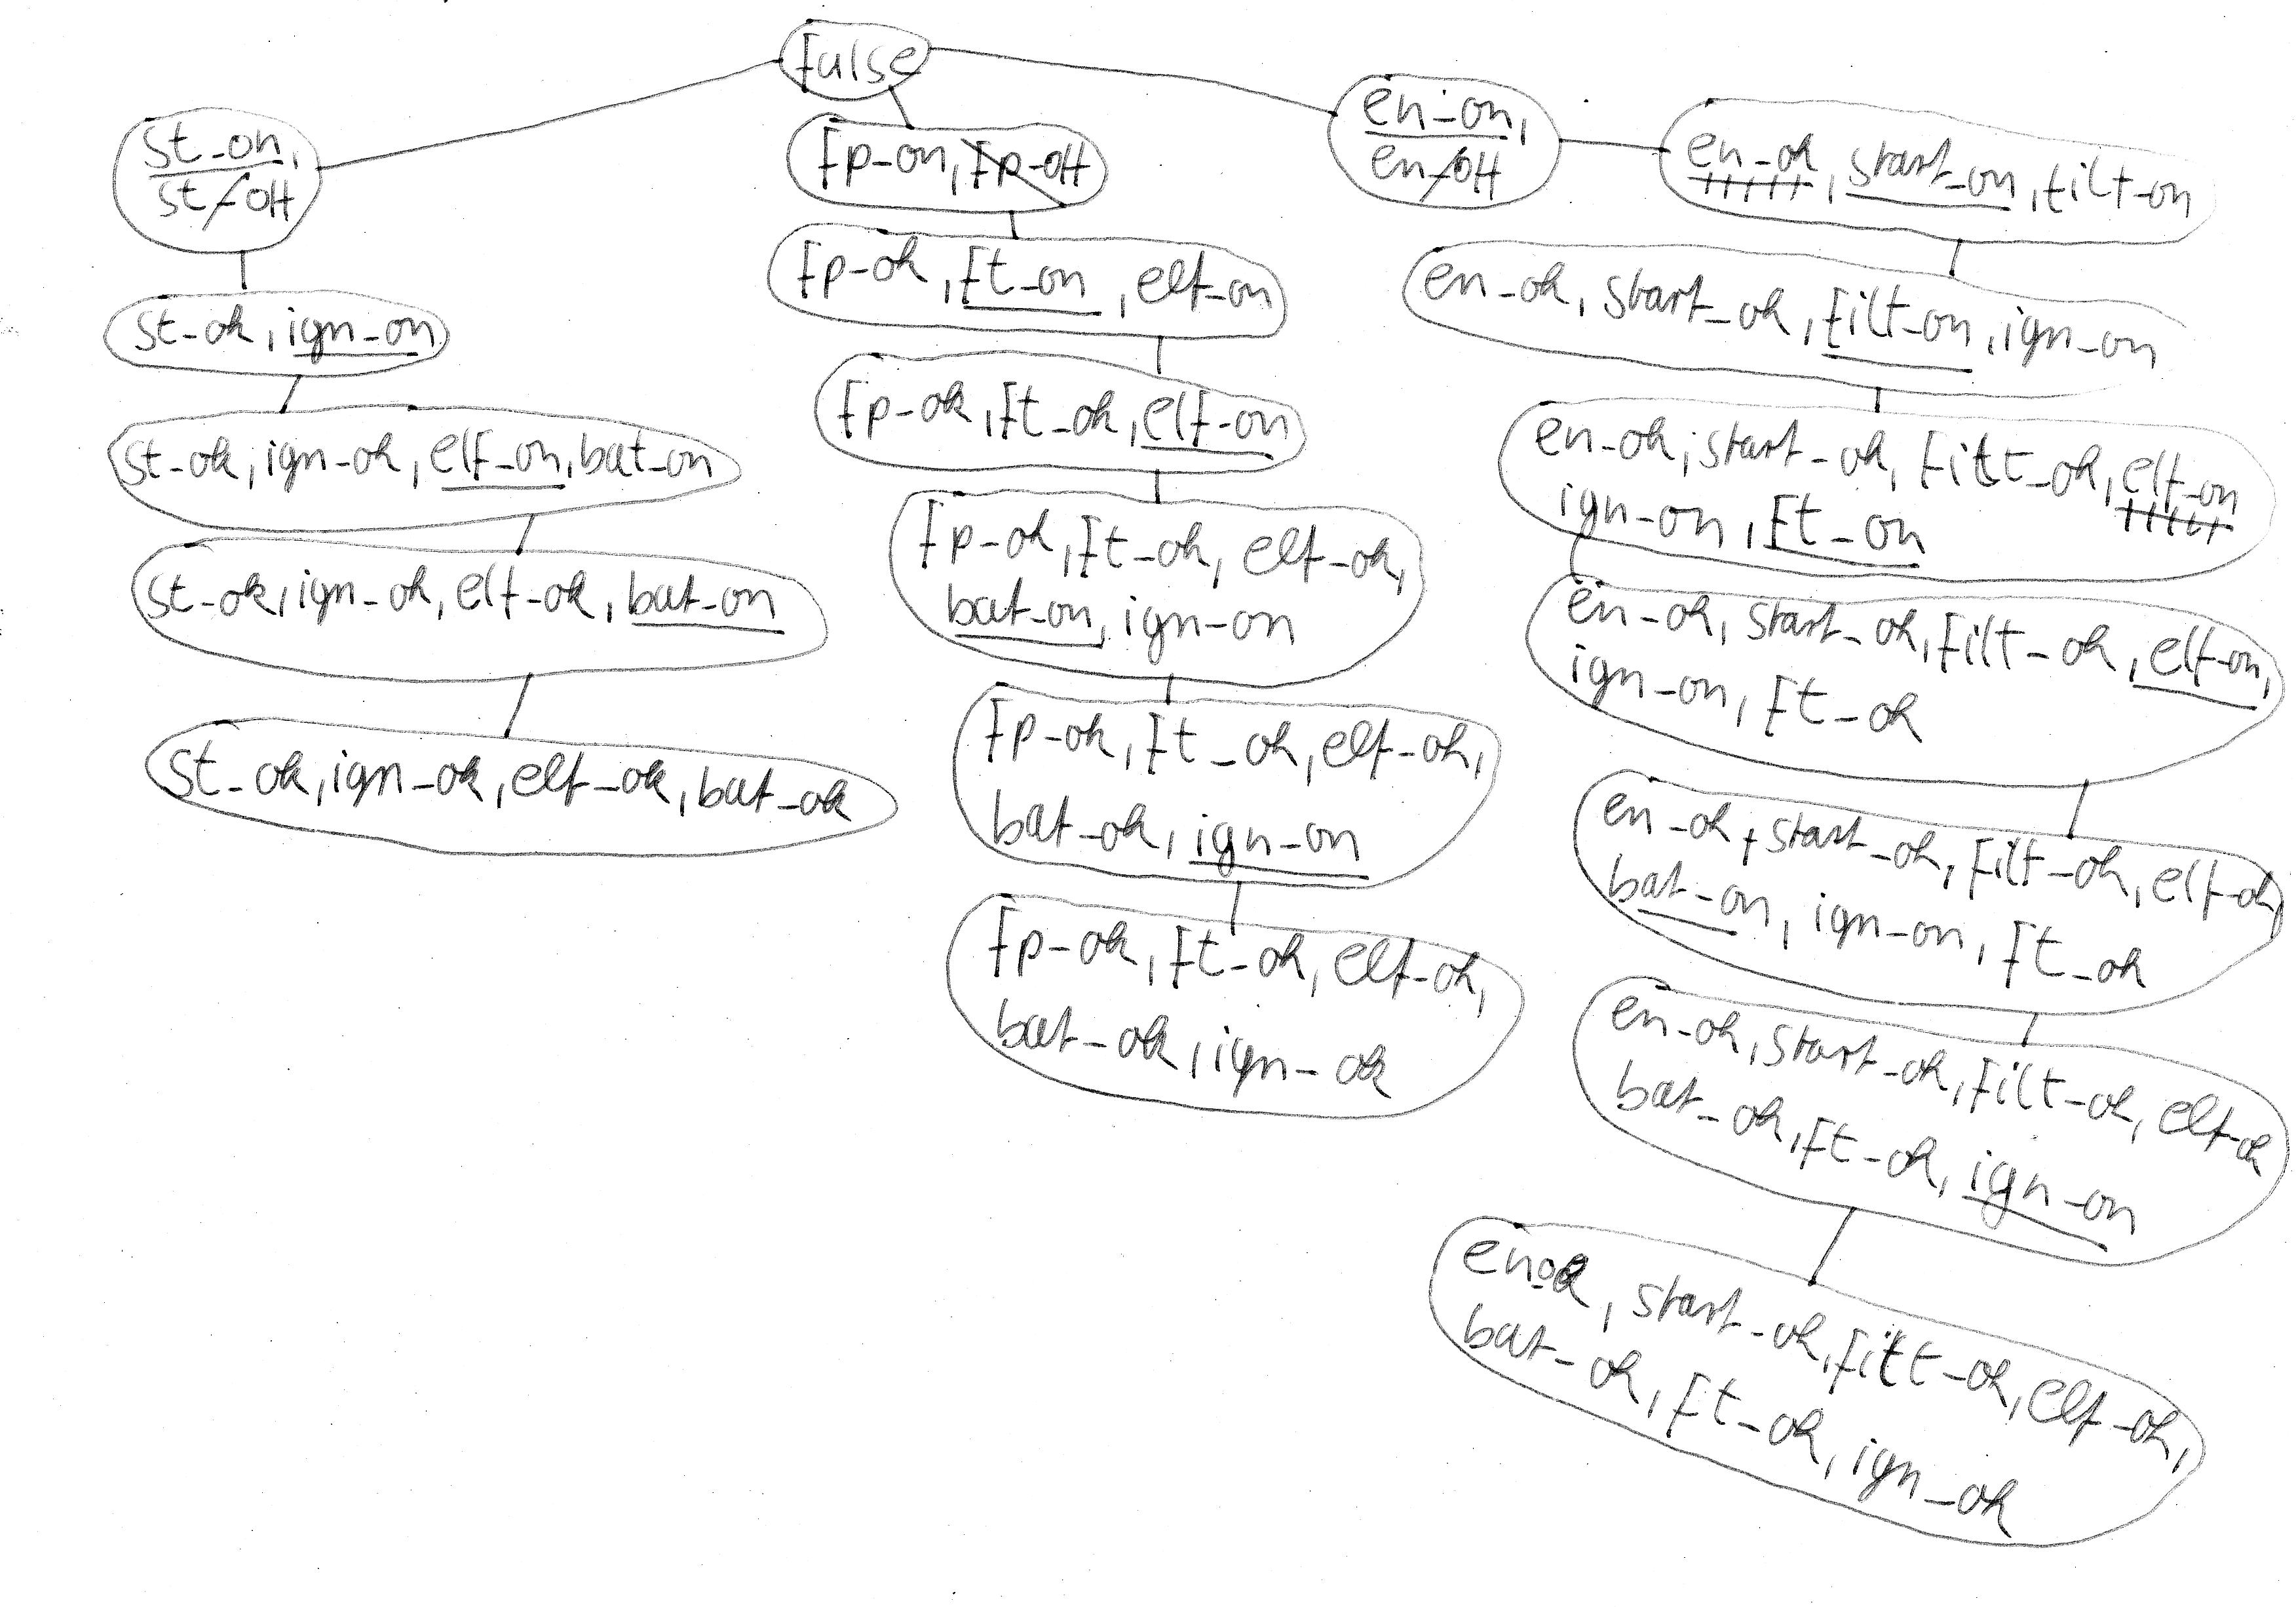 false
st_on,
st_off
st_ok, ign_on
st_ok, ign_ok, elf_on, bat_on
st_ok, ign_ok, elf_ok, bat_on
st_ok, ign_ok, elf_ok, bat_ok
fp_on, fp_off
fp_ok, ft_on, elf_on
fp_ok, ft_ok, elf_on
fp_ok, ft_ok, elf_ok,
bat_on, ign_on
fp_ok, ft_ok, elf_ok,
bat_ok, ign_on
fp_ok, ft_ok, elf_ok,
bat_ok, ign_ok
en_on,
en_off
en_ok, start_on, filt_on
en_ok, start_ok, filt_on, ign_on
en_ok, start_ok, filt_ok, elf_on
ign_on, ft_on
en_ok, start_ok, filt_ok, elf_on,
ign_on, ft_ok
en_ok, start_ok, filt_ok, elf_ok
bat_on, ign_on, ft_ok
en_ok, start_ok, filt_ok, elf_ok
bat_ok, ft_ok, ign_on
en_ok, start_ok, filt_ok, elf_ok,
bat_ok, ft_ok, ign_ok